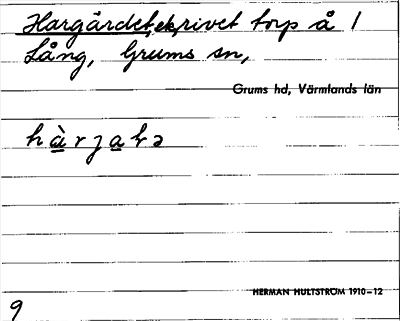 Hargärdet, ekrivet torp å 1
Lång, Grums sn,
Grums hd, Värmlands län
HERMAN HULTSTRÖM 1910–12
9